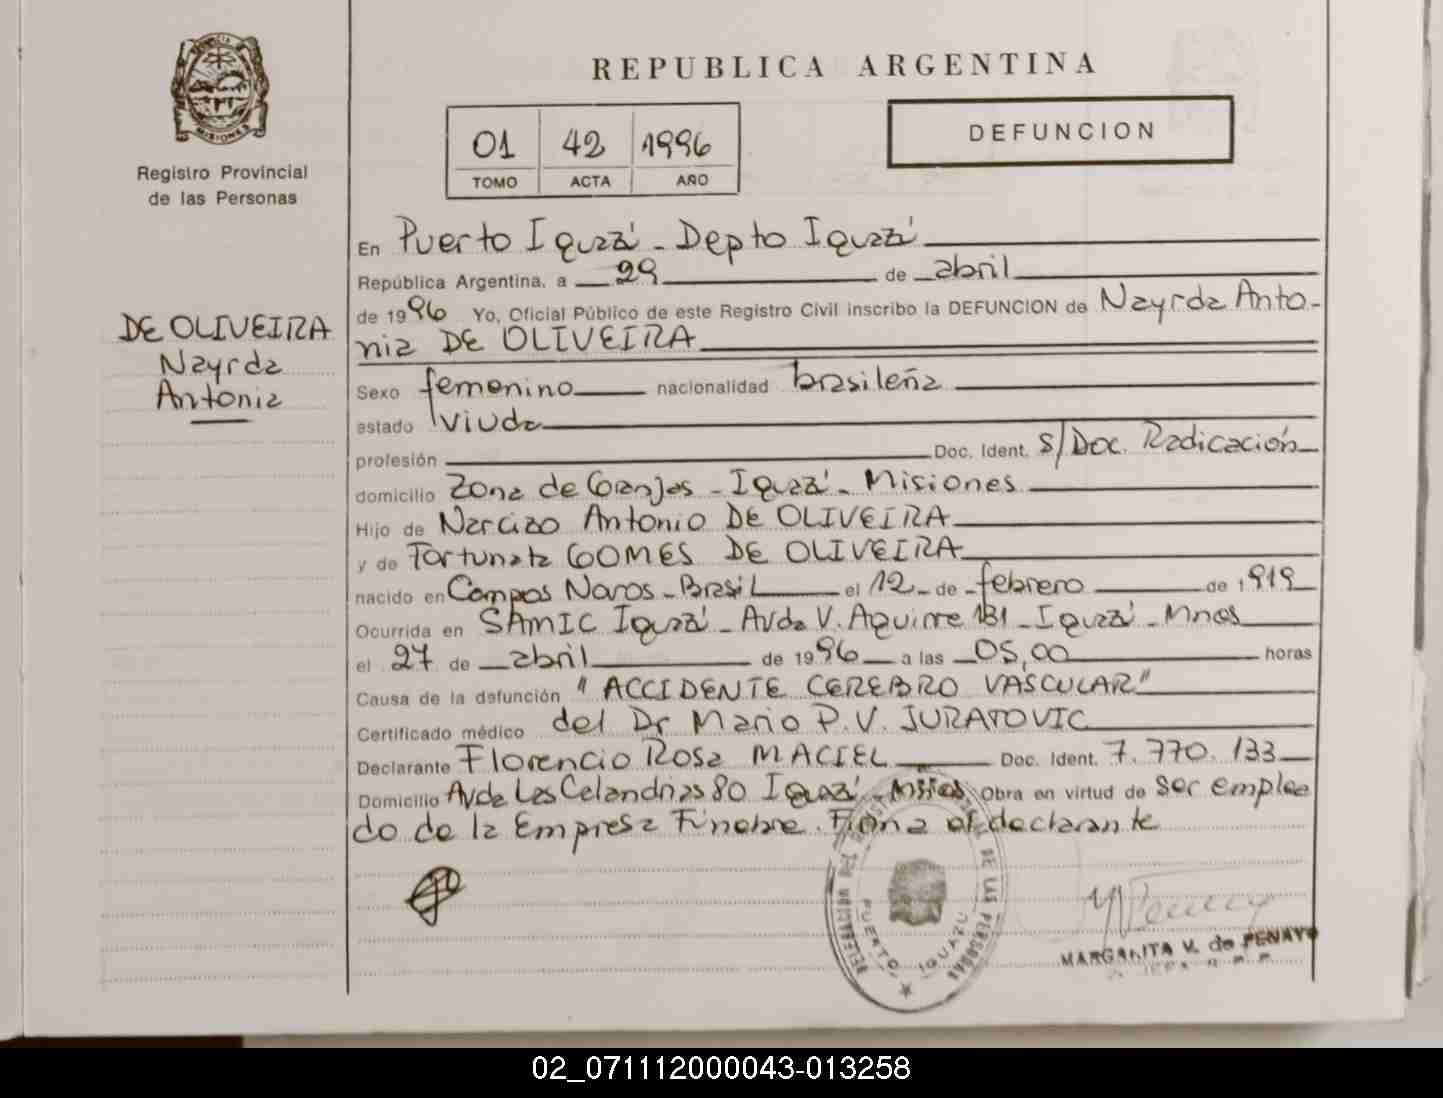 REPUBLICA ARGENTINA
MISIONES
Registro Provincial
de las Personas
01 42 1996
TOMO ACTA AÑO
DEFUNCION
DE OLIVEIRA
Nayrda
Antonia
En Puerto Iguazú - Depto Iguazú
República Argentina, a 29 de abril
de 1996 Yo, Oficial Público de este Registro Civil inscribo la DEFUNCION de Nayrda Anto-
nia DE OLIVEIRA
Sexo femenino nacionalidad brasileña
estado Viuda
profesión Doc. Ident. S/Doc. Radicación
domicilio Zona de Granjas - Iguazú - Misiones
Hijo de Narcizo Antonio DE OLIVEIRA
y de Fortunata GOMES DE OLIVEIRA
nacido en Campos Novos - Brasil el 12 - de - febrero de 1919
Ocurrida en SAMIC Iguazú - Avda V. Aguirre 131 - Iguazú - Mnes
el 27 de abril de 1996 a las 05,00 horas
Causa de la defunción "ACCIDENTE CEREBRO VASCULAR"
Certificado médico del Dr Mario P.V. JURATOVIC
Declarante Florencio Rosa MACIEL Doc. Ident. 7.770.133
Domicilio Avda Las Celandrias 80 Iguazú - Mnes Obra en virtud de ser emplea
do de la Empresa Fúnebre. Firma el declarante
DE LAS PERSONAS
PUERTO IGUAZU
MARGARITA V. de PENAYO
02_071112000043-013258